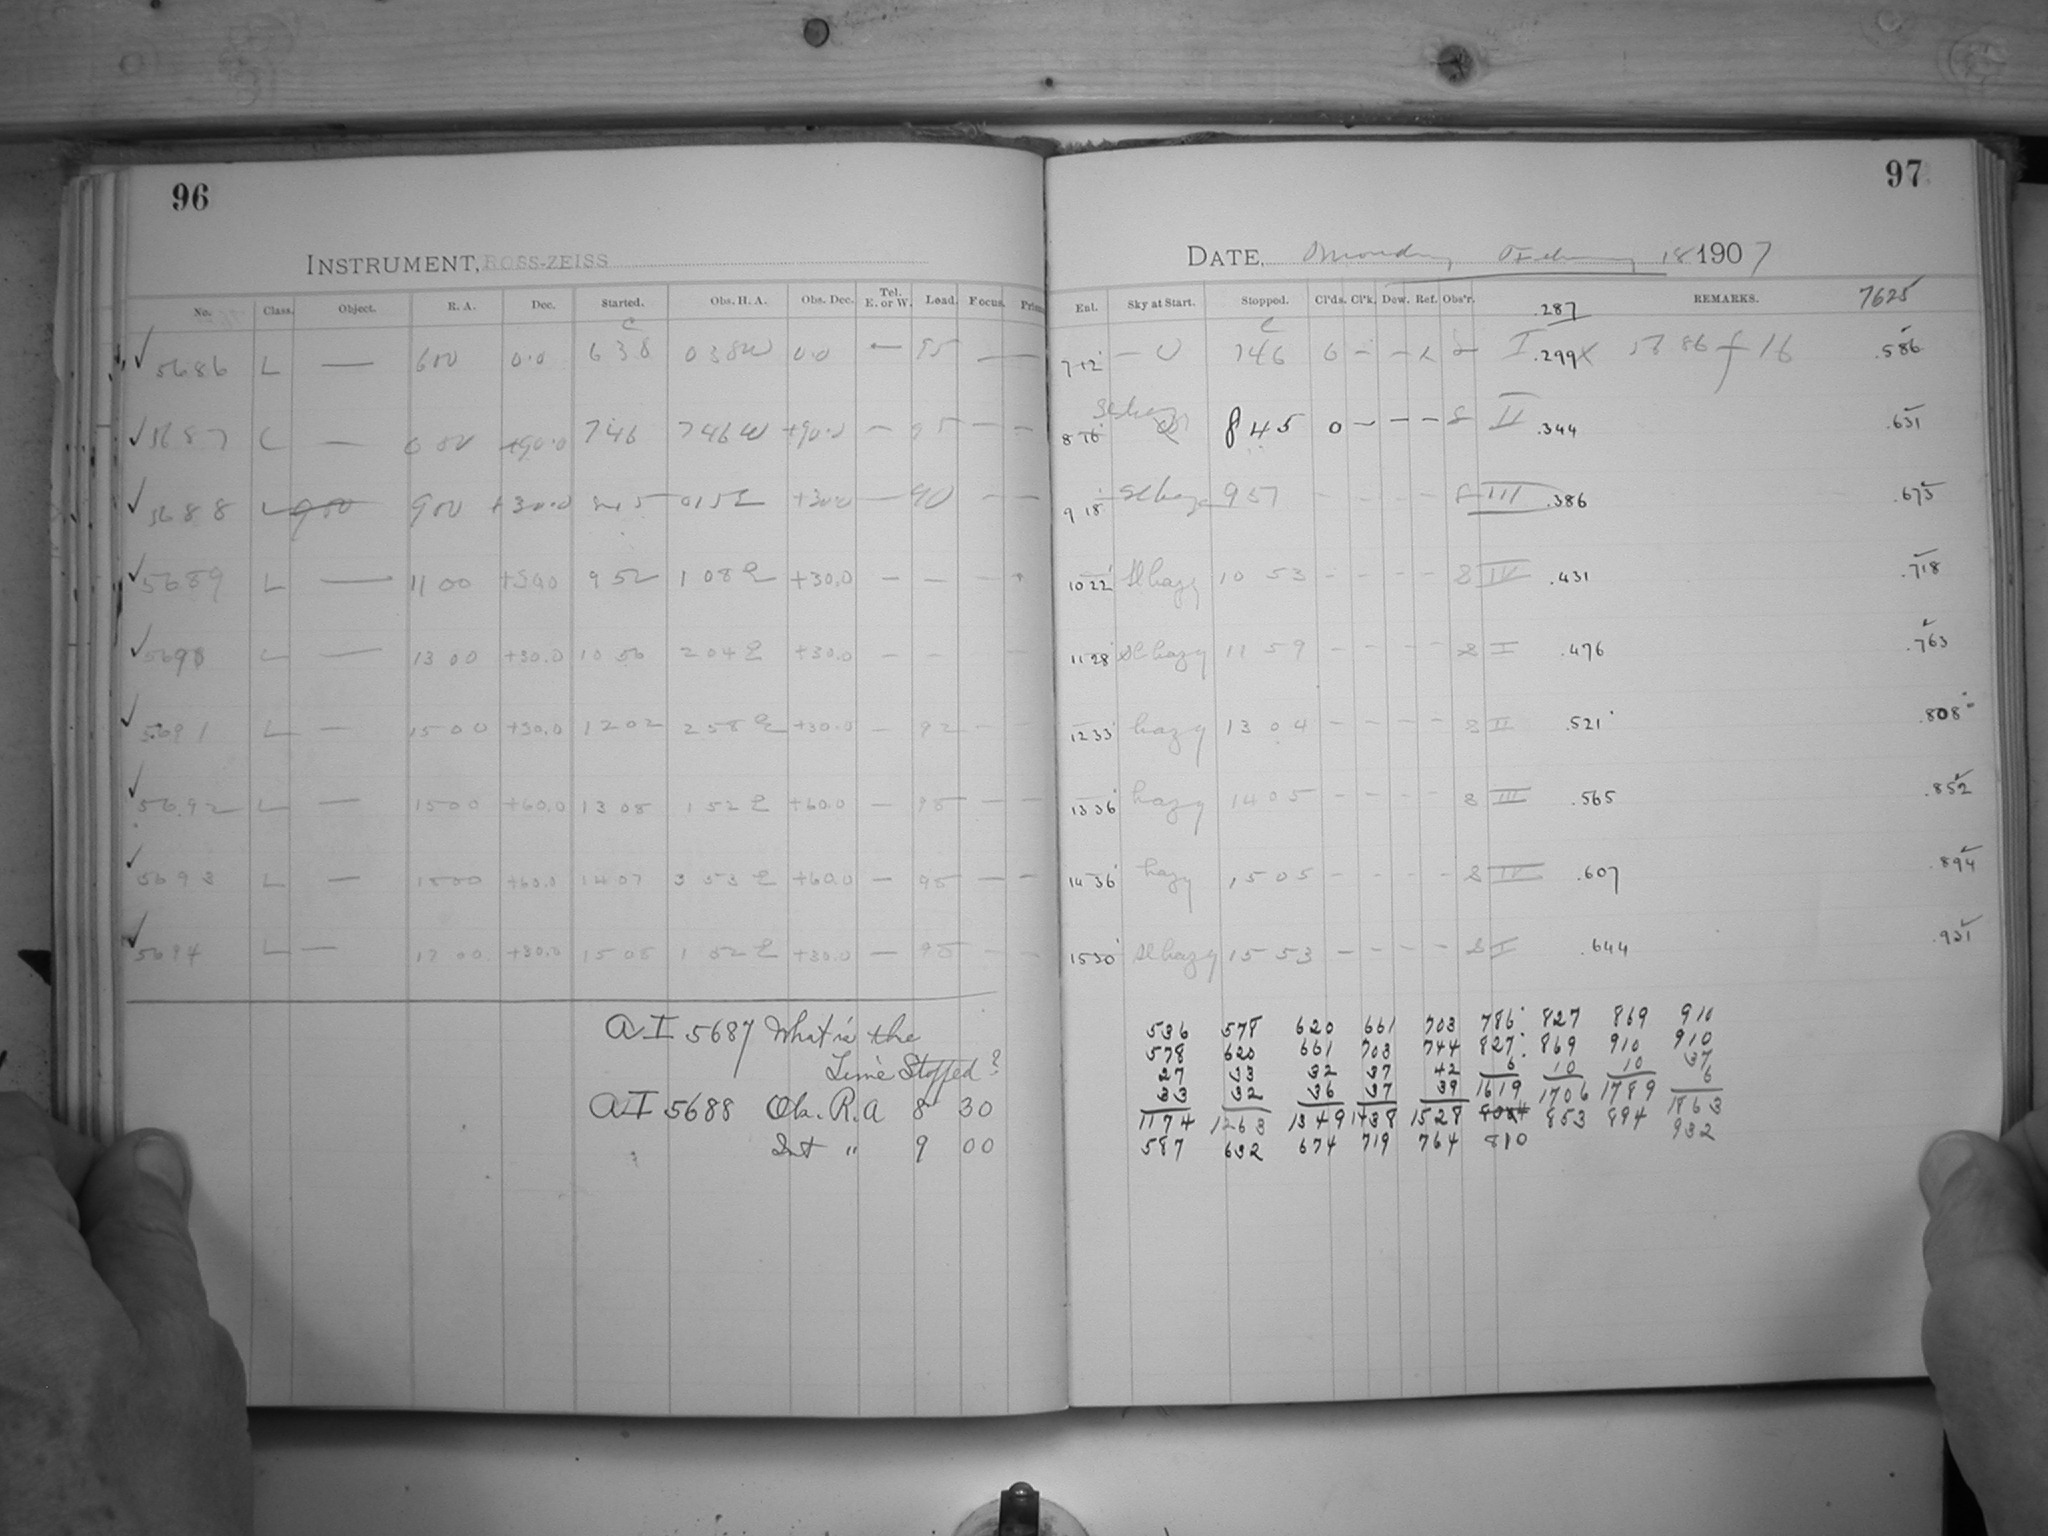 96
INSTRUMENT, ROSS-ZEISS
No. Class. Object. R. A. Dec. Started. Obs. H. A. Obs. Dec. Tel. E. or W. Load. Focus.
✓ 5686 L — 600 0.0 638 038W 0.0 — 95 — —
✓ 5687 — +90.0 746 746 W +90.0 — 95 — —
✓ 5688 L 900 900 +30.0 845 015E +30.0 — 90 — —
✓ 5689 L — 11 00 9 52 1 08 E +30.0 — — —
✓ 5690 L — 13 00 +30.0 10 56 2 04 E +30.0 — — —
✓ 5691 L — 15 00 +30.0 12 02 2 58 E +30.0 — 92 — —
✓ 5692 L — 15 00 +60.0 13 05 1 52 E +60.0 — 95 — —
✓ 5693 L — +60.0 14 07 3 53 E +60.0 — 95 — —
✓ 5694 L — 17 00 +30.0 15 05 1 52 E +30.0 — 95 — —
A I 5687 What is the
Time Stopped?
A I 5688 Obs. R.A 8 30
Int " 9 00
97
DATE, Monday February 18 1907
Ent. Sky at Start. Stopped. Cl'ds. Cl'k. Dew. Ref. Obs'r. REMARKS. 7625
.287
7 12 746 I .299 .586
8 16 Sl hazy 845 0 — — — S II .344 .631
9 18 Sl hazy 957 - - - - S III .386 .673
10 22 Sl hazy 10 53 - - - - S IV .431 .718
11 28 Sl hazy 11 59 - - - - S I .476 .763
12 33 hazy 13 04 - - - - S II .521 .808
13 36 hazy 14 05 - - - - S III .565 .852
14 36 hazy 15 05 - - - - S IV .607 .894
15 30 Sl hazy 15 53 - - - - S I .644 .931
536 578 620 661 703 786 827 869 910
578 620 661 703 744 827 869 910 910
27 33 32 37 42 6 10 10 37
33 32 36 37 39 1619 1706 1789 6
1174 1263 1349 1438 1528 853 894 1863
587 632 674 719 764 810 932